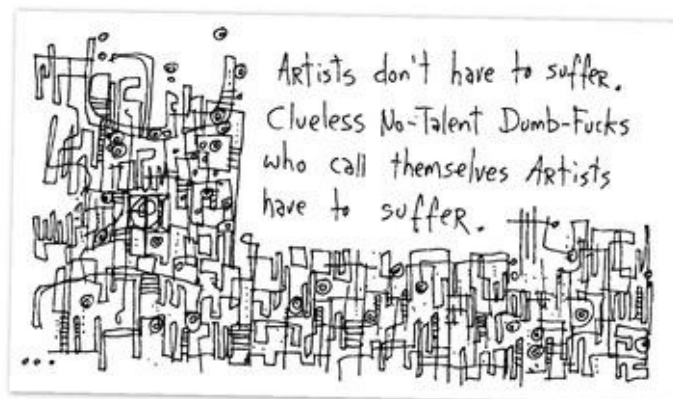 Artists don't have to suffer.
Clueless No-Talent Dumb-Fucks
who call themselves Artists
have to suffer.